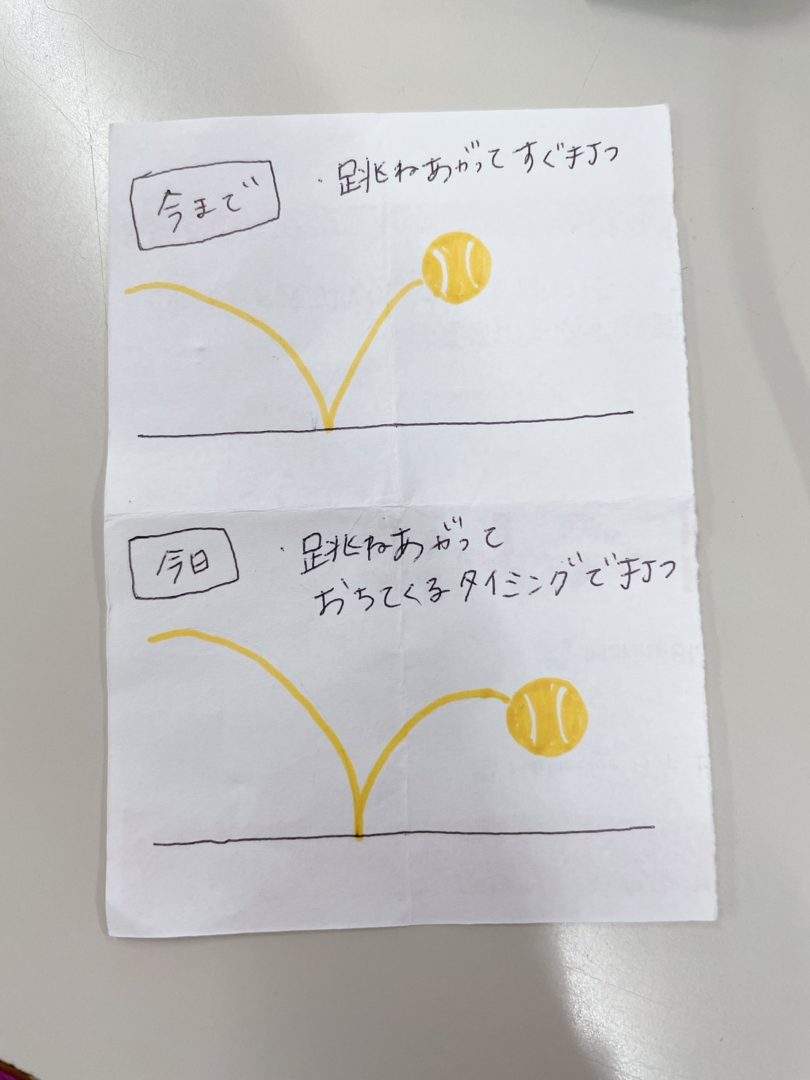 今まで
・跳ねあがってすぐ打つ
今日
・跳ねあがって
おちてくるタイミングで打つ